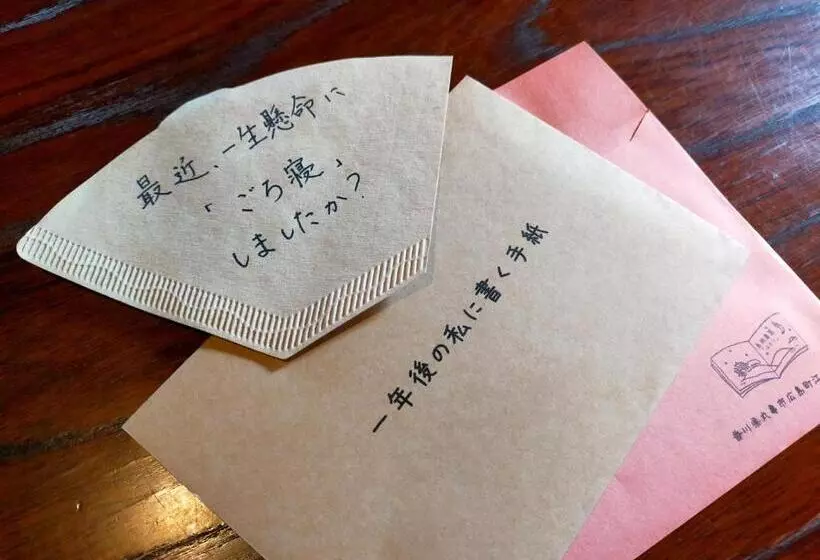 最近、一生懸命に
「ごろ寝」
しましたか?
一年後の私に書く手紙
香川県丸亀市広島町江